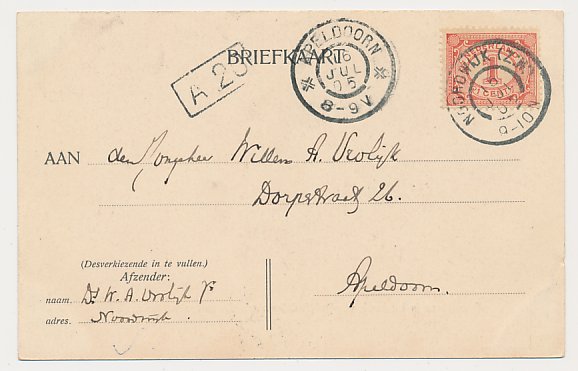 BRIEFKAART
A 25
APELDOORN
6
JUL
05
8-9V
NOORDWIJK (Z.H.)
9-10N
1 CENT
AAN den Jongeheer Willem A. Vrolijk
Dorpstraat 26.
Apeldoorn.
(Desverkiezende in te vullen.)
Afzender:
naam. Ds W. A. Vrolijk Jr
adres. Noordwijk.